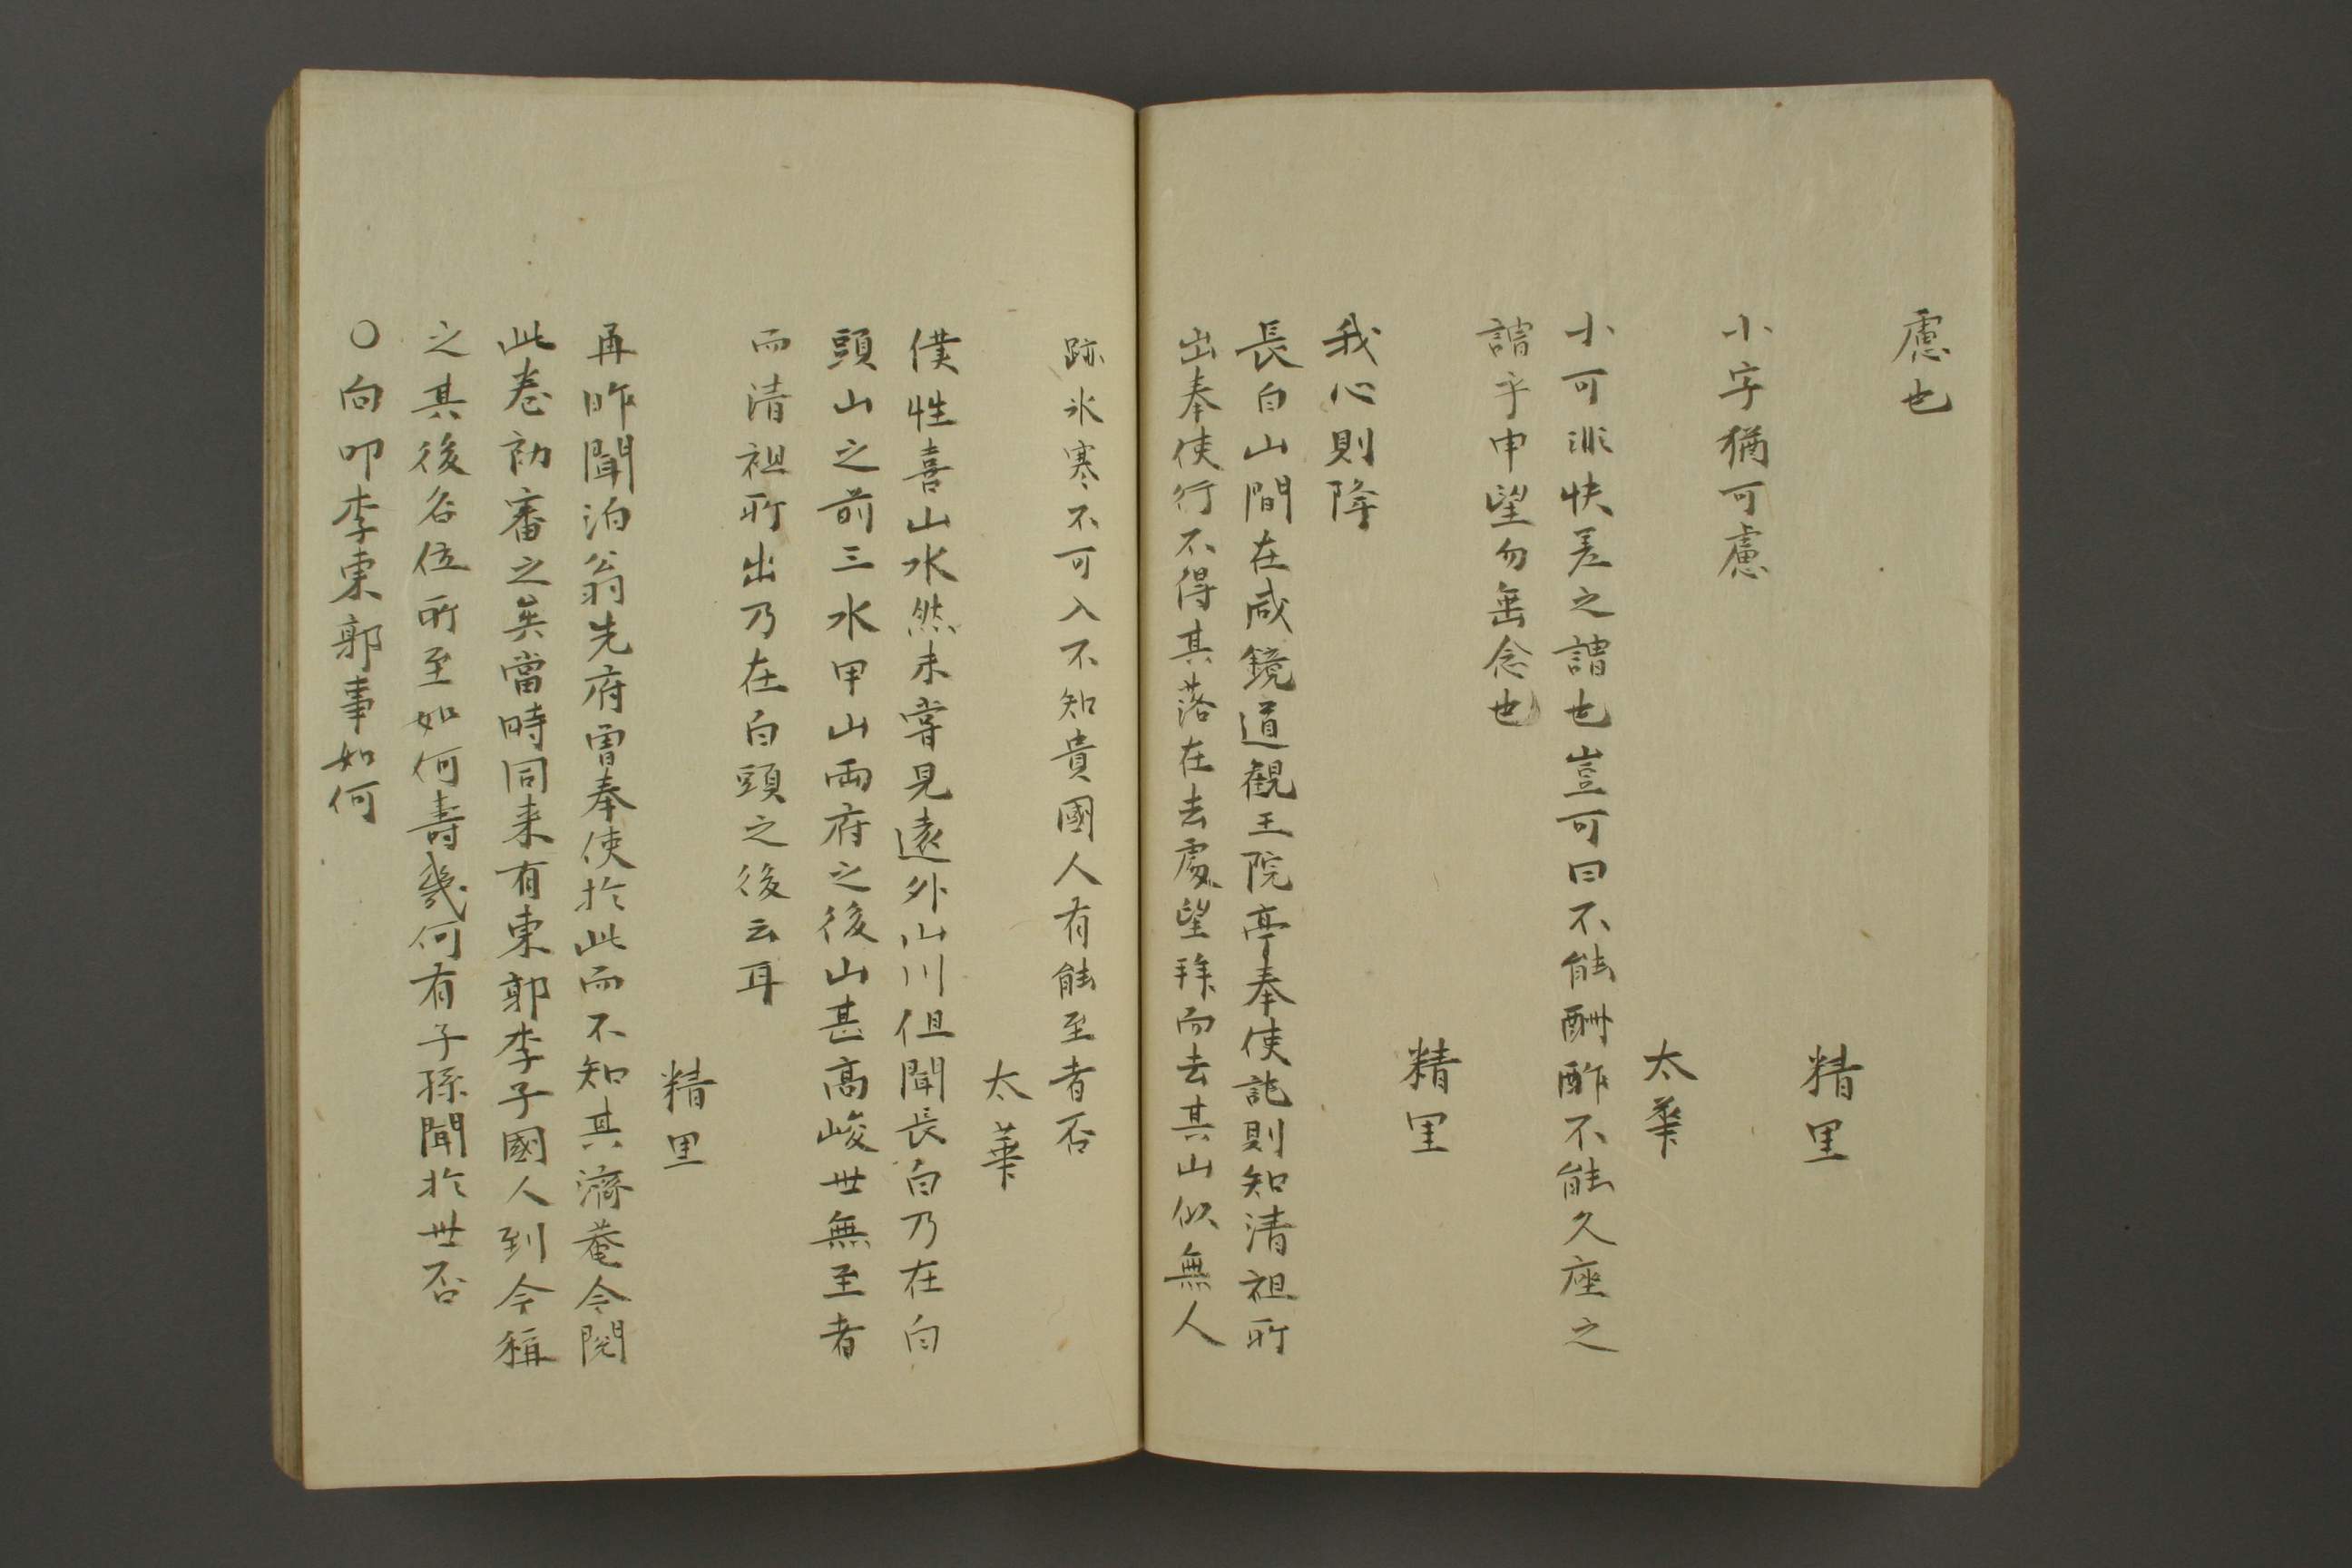 慮也
精里
小字猶可慮
太華
小可非快差之謂也豈可曰不能酬酢不能久座之
謂乎申望勿置念也
精里
我心則降
長白山間在咸鏡道観王院亭奉使記則知清祖所
出奉使行不得其落在去處望拜而去其山似無人
跡氷寒不可入不知貴國人有能至者否
太華
僕性喜山水然未嘗見遠外山川但聞長白乃在白
頭山之前三水甲山両府之後山甚高峻世無至者
而清祖所出乃在白頭之後云耳
精里
再昨聞泊翁先府曽奉使於此而不知其濟菴今閲
此巻初審之矣當時同来有東郭李子國人到今稱
之其後名位所至如何壽幾何有子孫聞於世否
○向叩李東郭事如何